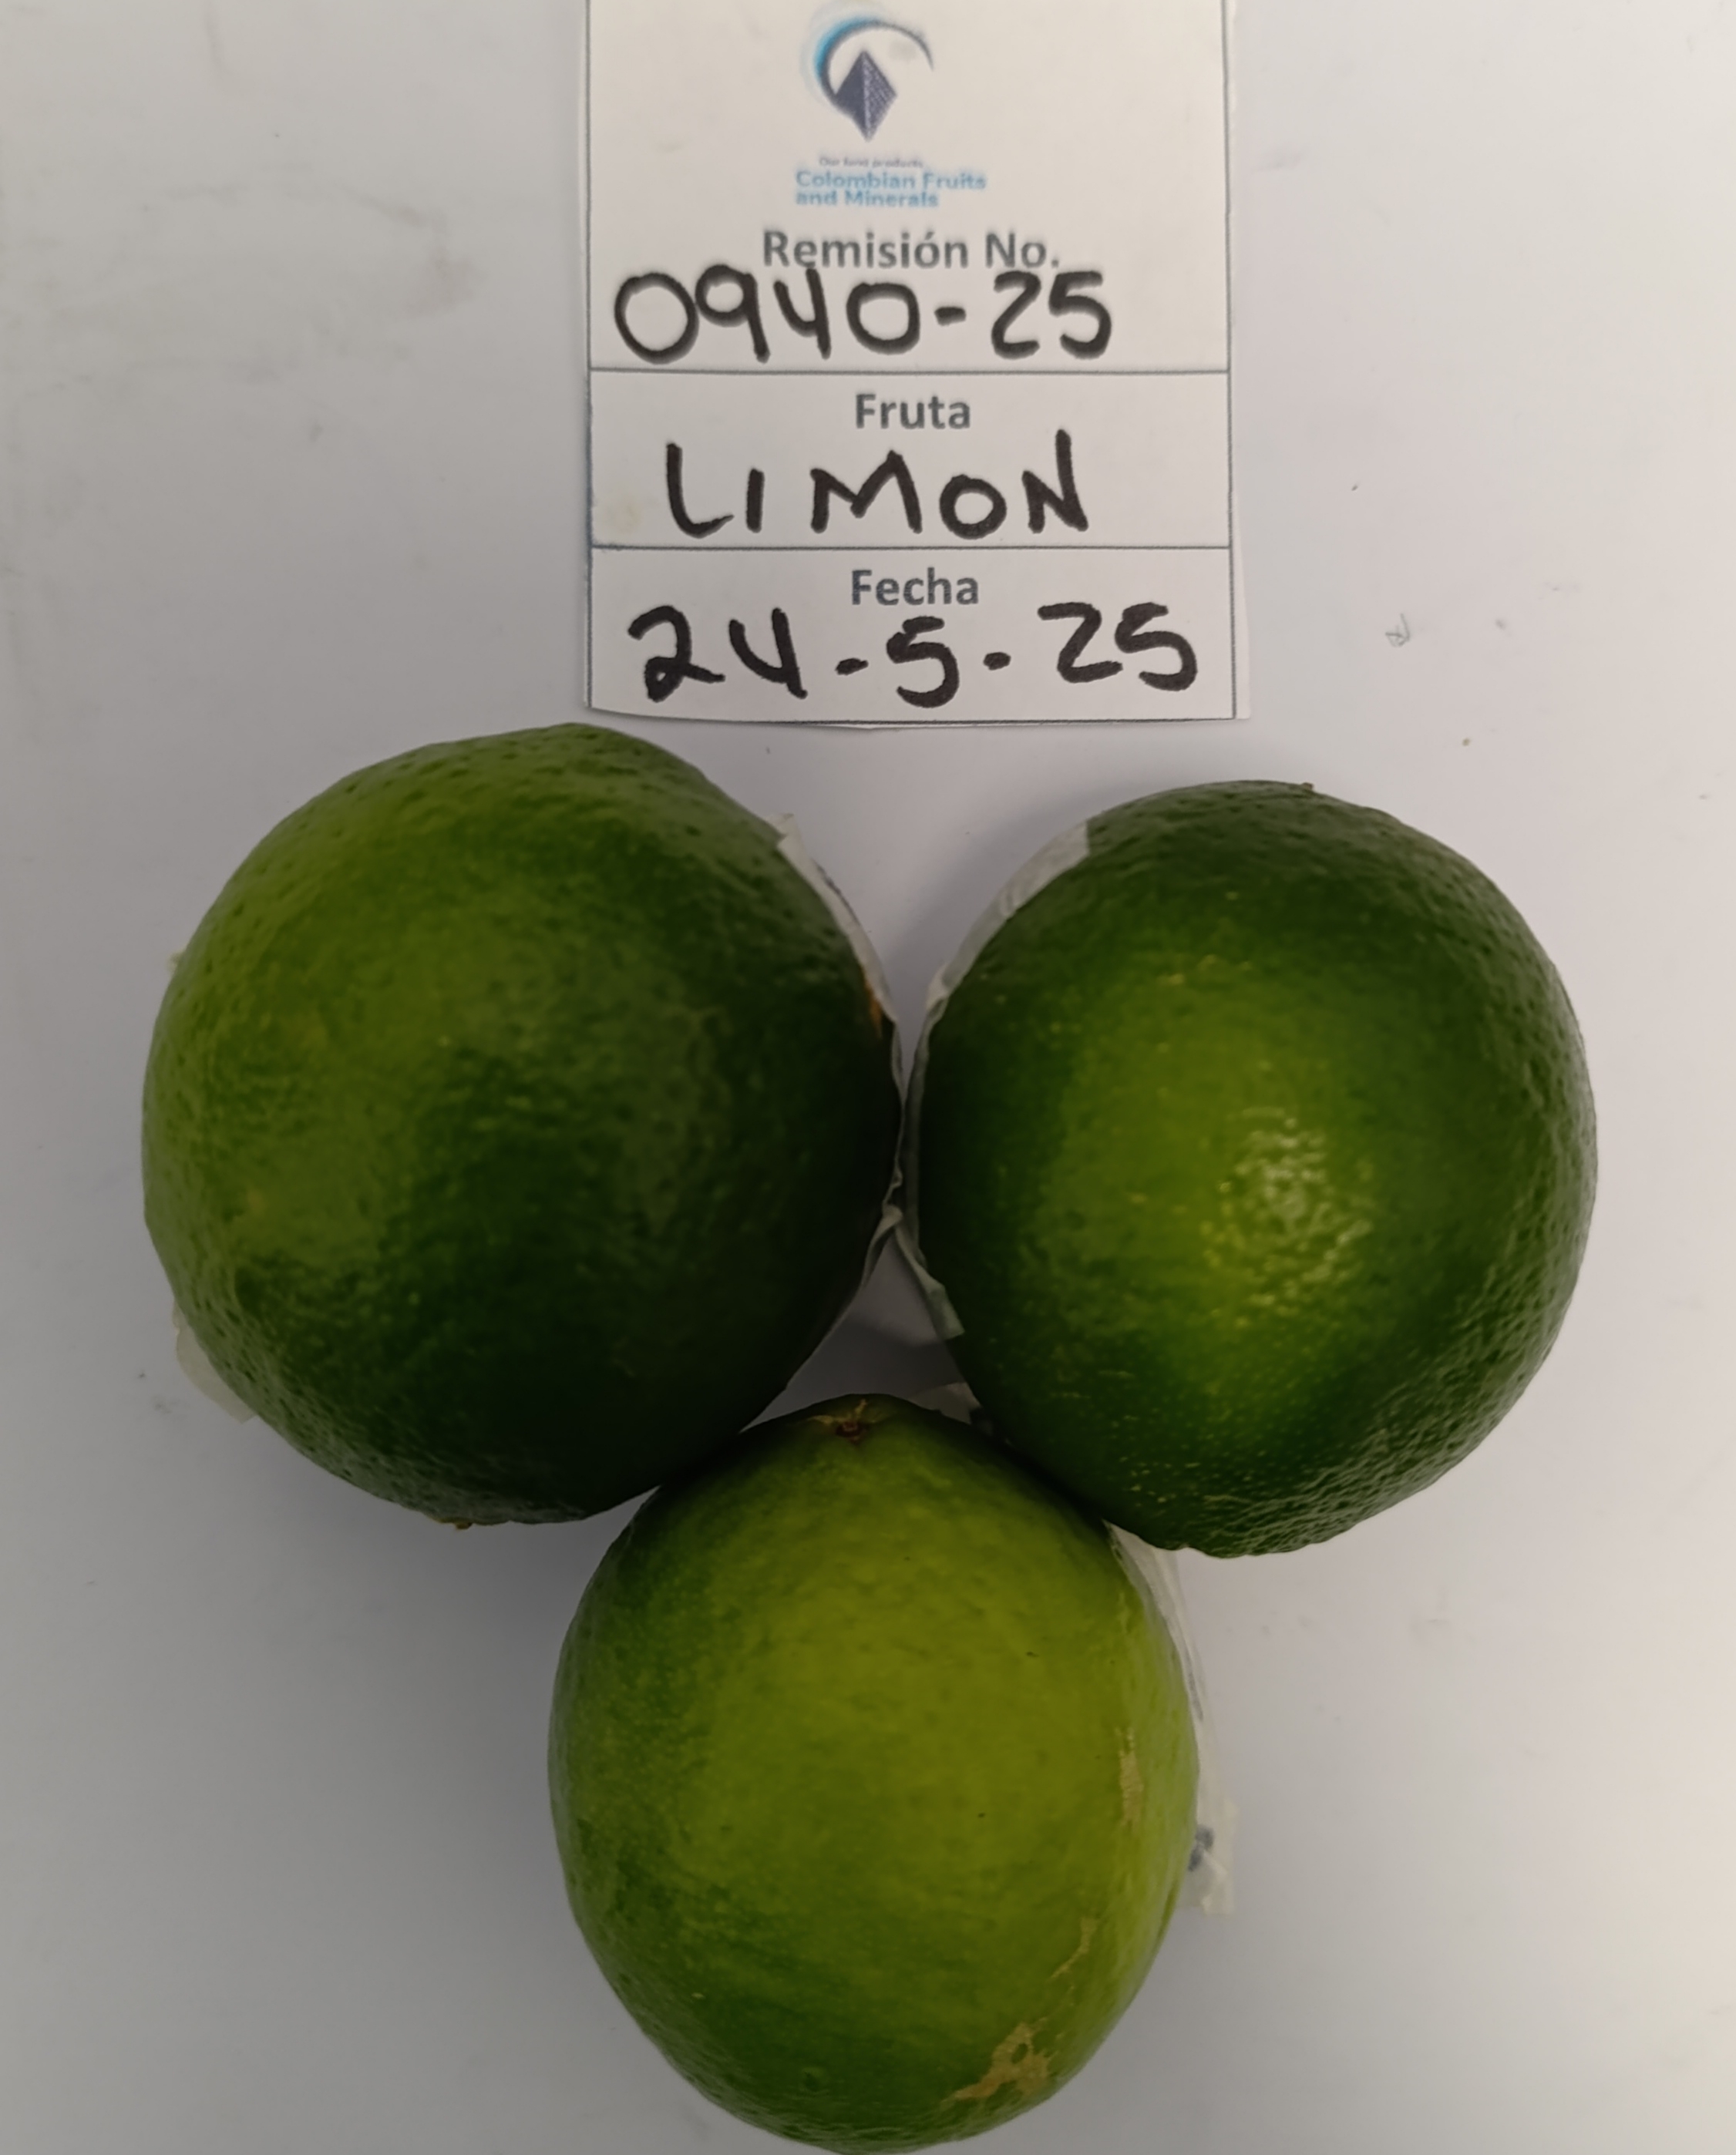 Our best products
Colombian Fruits
and Minerals
Remisión No.
0940-25
Fruta
LIMON
Fecha
24-5-25